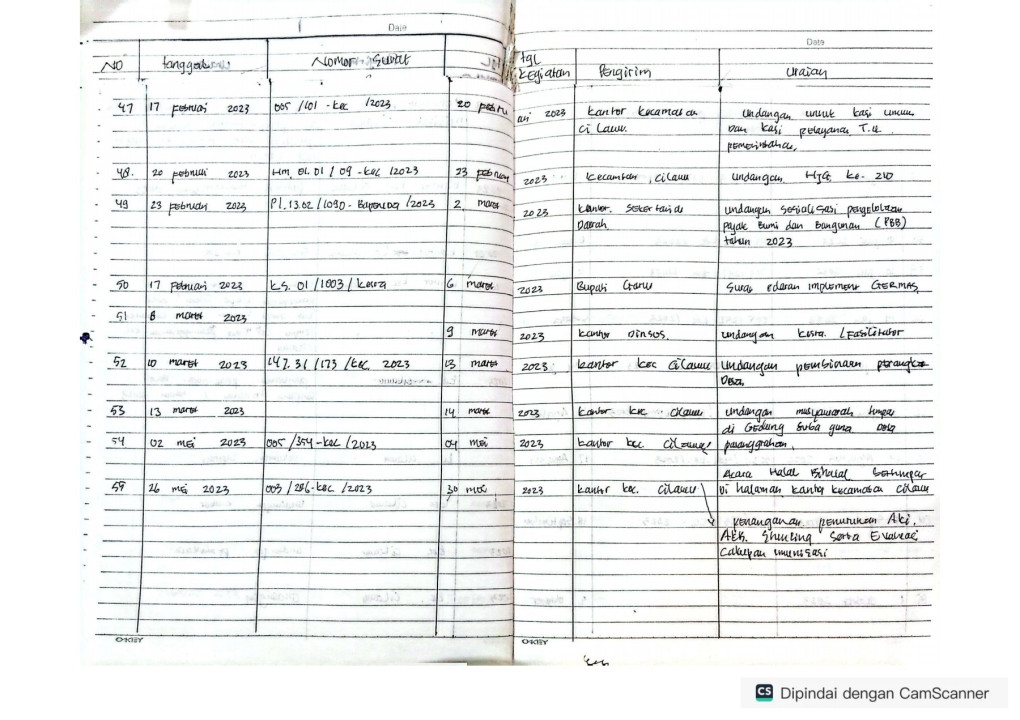 Date
Date
NO tanggal Nomor Surat tgl kegiatan Pengirim Uraian
47 17 Februari 2023 005 /101 - kec /2023 20 Februari 2023 kantor kecamatan Cilawu. Undangan untuk kasi umum
Dan kasi pelayanan T.u.
pemerintahan.
48. 20 Februari 2023 Hm. 01. 01 / 09 - kec /2023 23 Februari 2023 kecamatan, Cilawu Undangan HJG ke. 210
49 23 Februari 2023 Pl. 13.02 /1090 - Bapenda /2023 2 maret 2023 kantor. Sekertaris Daerah Undangan Sosialisasi pengelolaan
pajak Bumi dan Bangunan (PBB)
tahun 2023
50 17 Februari 2023 k.s. 01 /1003 / kesra 6 maret 2023 Bupati Garut Surat edaran implement GERMAS,
51 8 maret 2023
9 maret 2023 kantor Dinsos, undangan /Fasilitator
52 10 maret 2023 147. 31 /173 /kec. 2023 13 maret 2023 kantor kec Cilawu Undangan pembinaan perangkat
Desa.
53 13 maret 2023 14 maret 2023 kantor kec Cilawu Undangan musyawarah
di Gedung Guna Desa
54 02 mei 2023 005 /354 - kec /2023 04 mei 2023 kantor kec Cilawu
Acara Halal Bihalal bertempat
59 26 mei 2023 003 /286 - kec /2023 30 mei 2023 kantor kec. Cilawu Di halaman kantor kecamatan Cilawu
penanganan penurunan Aki,
AKB. Shunting Serta Evaluasi
Cakupan imunisasi
OKEY
OKEY
CS Dipindai dengan CamScanner